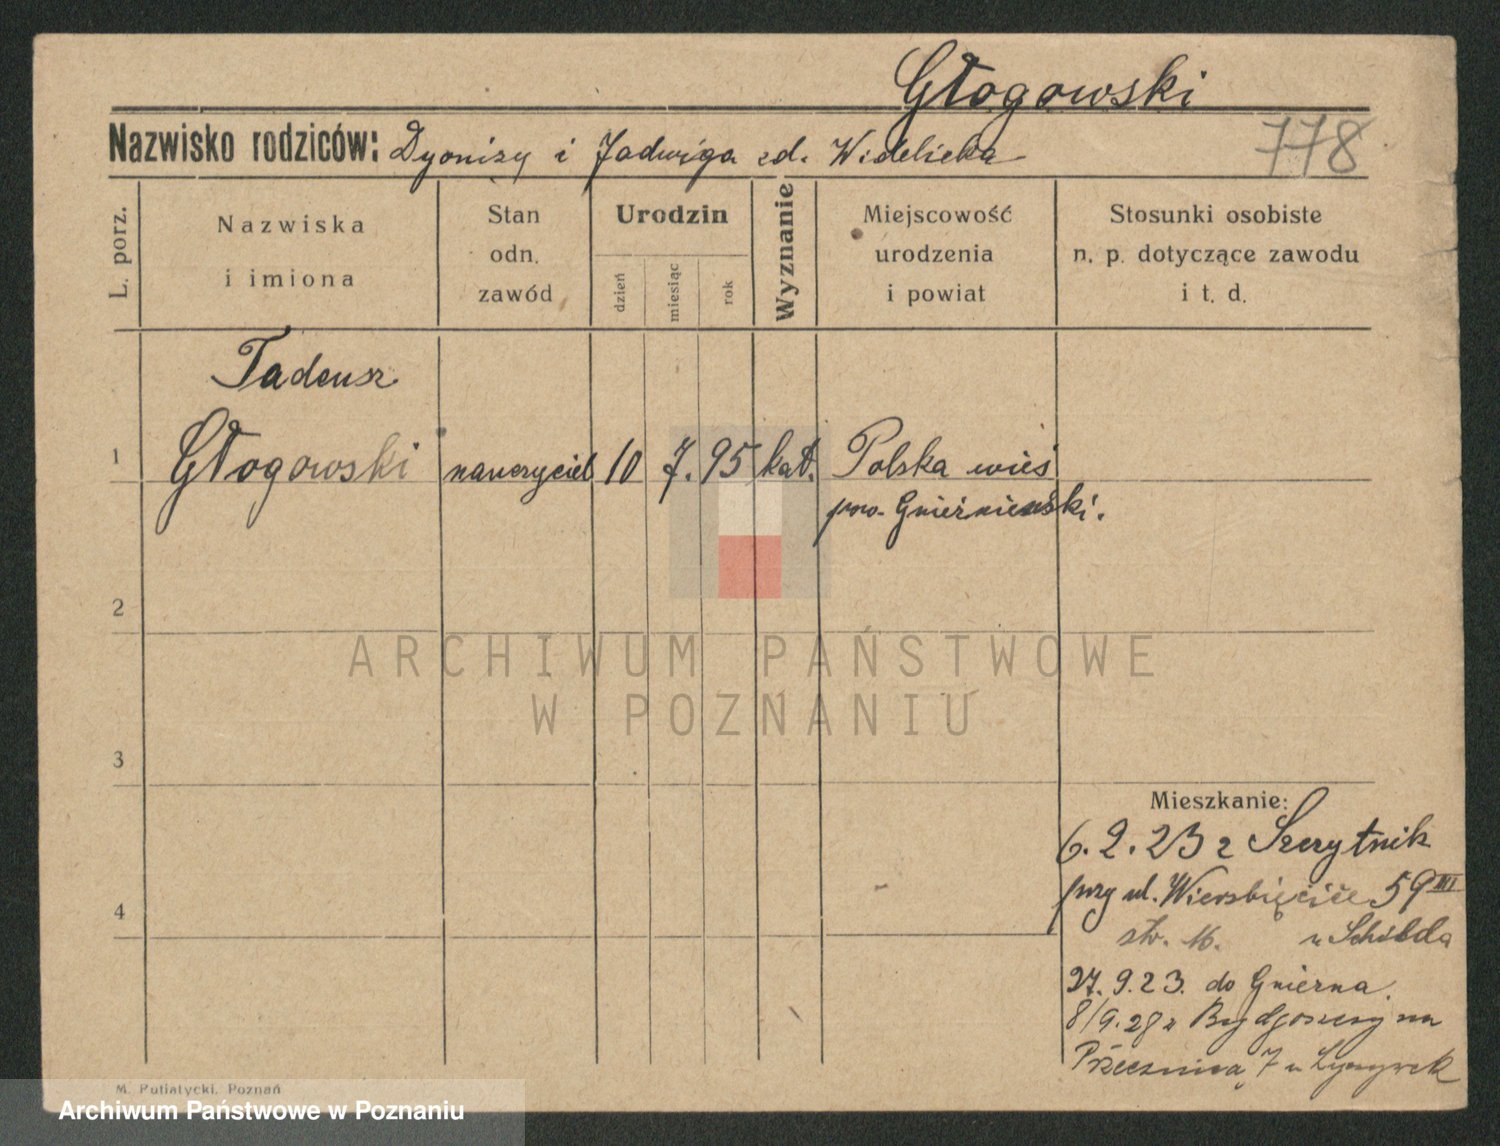 Głogowski
Nazwisko rodziców: Dyonizy i Jadwiga zd. Widelicka
778
L. porz.
Nazwiska
i imiona
Stan
odn.
zawód
Urodzin
dzień
miesiąc
rok
Wyznanie
Miejscowość
urodzenia
i powiat
Stosunki osobiste
n. p. dotyczące zawodu
i t. d.
Tadeusz
1 Głogowski nauczyciel 10 7. 95 kat. Polska wieś
pow. Gnieźnieński.
2
ARCHIWUM PAŃSTWOWE
W POZNANIU
3
Mieszkanie:
6.2.23 z Szczytnik
przy ul. Wierzbięcice 59 III
4
str. M. u Schibda
27.9.23. do Gniezna.
8/9.28 z Bydgoszczy na
Przecznicą 7 u
M. Putiatycki, Poznań
Archiwum Państwowe w Poznaniu